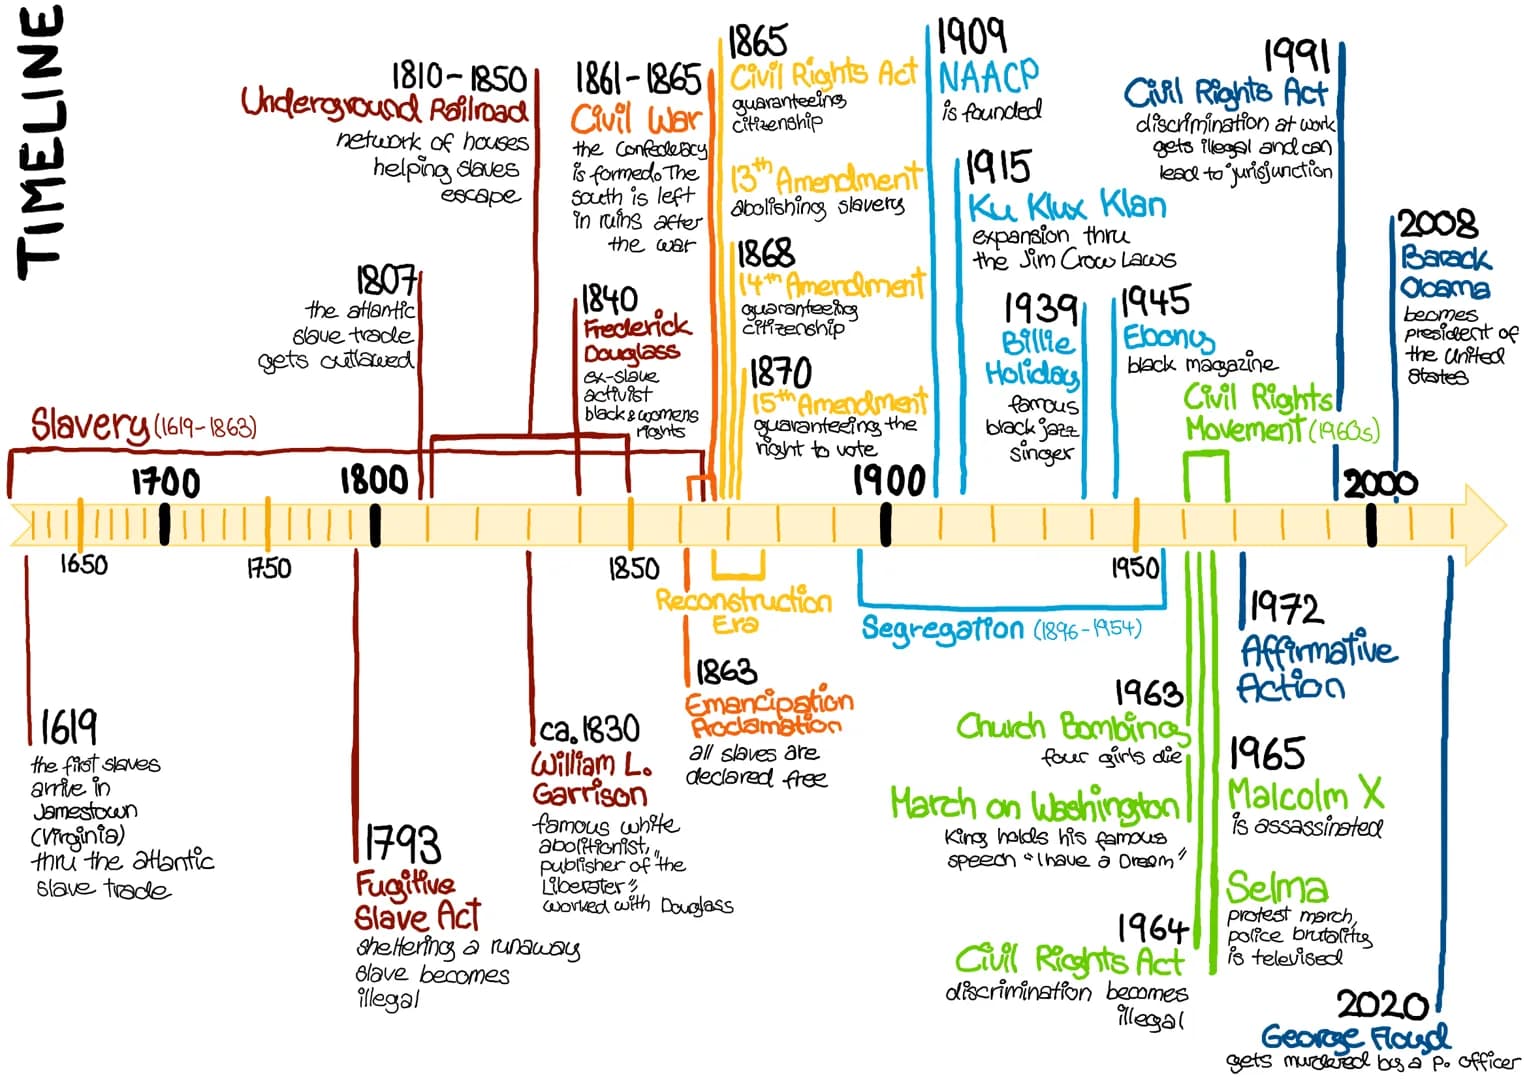 TIMELINE
1810-1850
Underground Railroad
network of houses
helping slaves
escape
1861-1865
Civil War
the Confederacy
is formed. The
south is left
in ruins after
the war
1865
Civil Rights Act
guaranteeing
citizenship
13th Amendment
abolishing slavery
1868
14th Amendment
guaranteeing
citizenship
1870
15th Amendment
guaranteeing the
right to vote
1909
NAACP
is founded
1915
Ku Klux Klan
expansion thru
the Jim Crow Laws
1939
Billie
Holiday
famous
black jazz
singer
1945
Ebony
black magazine
1991
Civil Rights Act
discrimination at work
gets illegal and can
lead to jurisjunction
2008
Barack
Obama
becomes
president of
the United
States
1807
the atlantic
slave trade
gets outlawed
1840
Frederick
Douglass
ex-slave
activist
black & womens
rights
Civil Rights
Movement (1960s)
Slavery (1619-1863)
1700
1800
1900
2000
1650
1750
1850
1950
Reconstruction
Era
Segregation (1896-1954)
1619
the first slaves
arrive in
Jamestown
(Virginia)
thru the atlantic
slave trade
1793
Fugitive
Slave Act
sheltering a runaway
slave becomes
illegal
ca. 1830
William L.
Garrison
famous white
abolitionist,
publisher of "the
Liberater",
worked with Douglass
1863
Emancipation
Proclamation
all slaves are
declared free
1963
Church Bombing
four girls die
March on Washington
King holds his famous
speech "I have a Dream"
1964
Civil Rights Act
discrimination becomes
illegal
1972
Affirmative
Action
1965
Malcolm X
is assassinated
Selma
protest march,
police brutality
is televised
2020
George Floyd
gets murdered by a p. officer